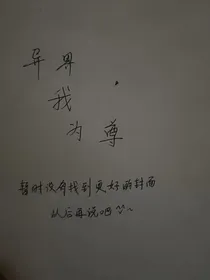 异界
我
为尊
暂时没有找到更好的封面
以后再说吧^^